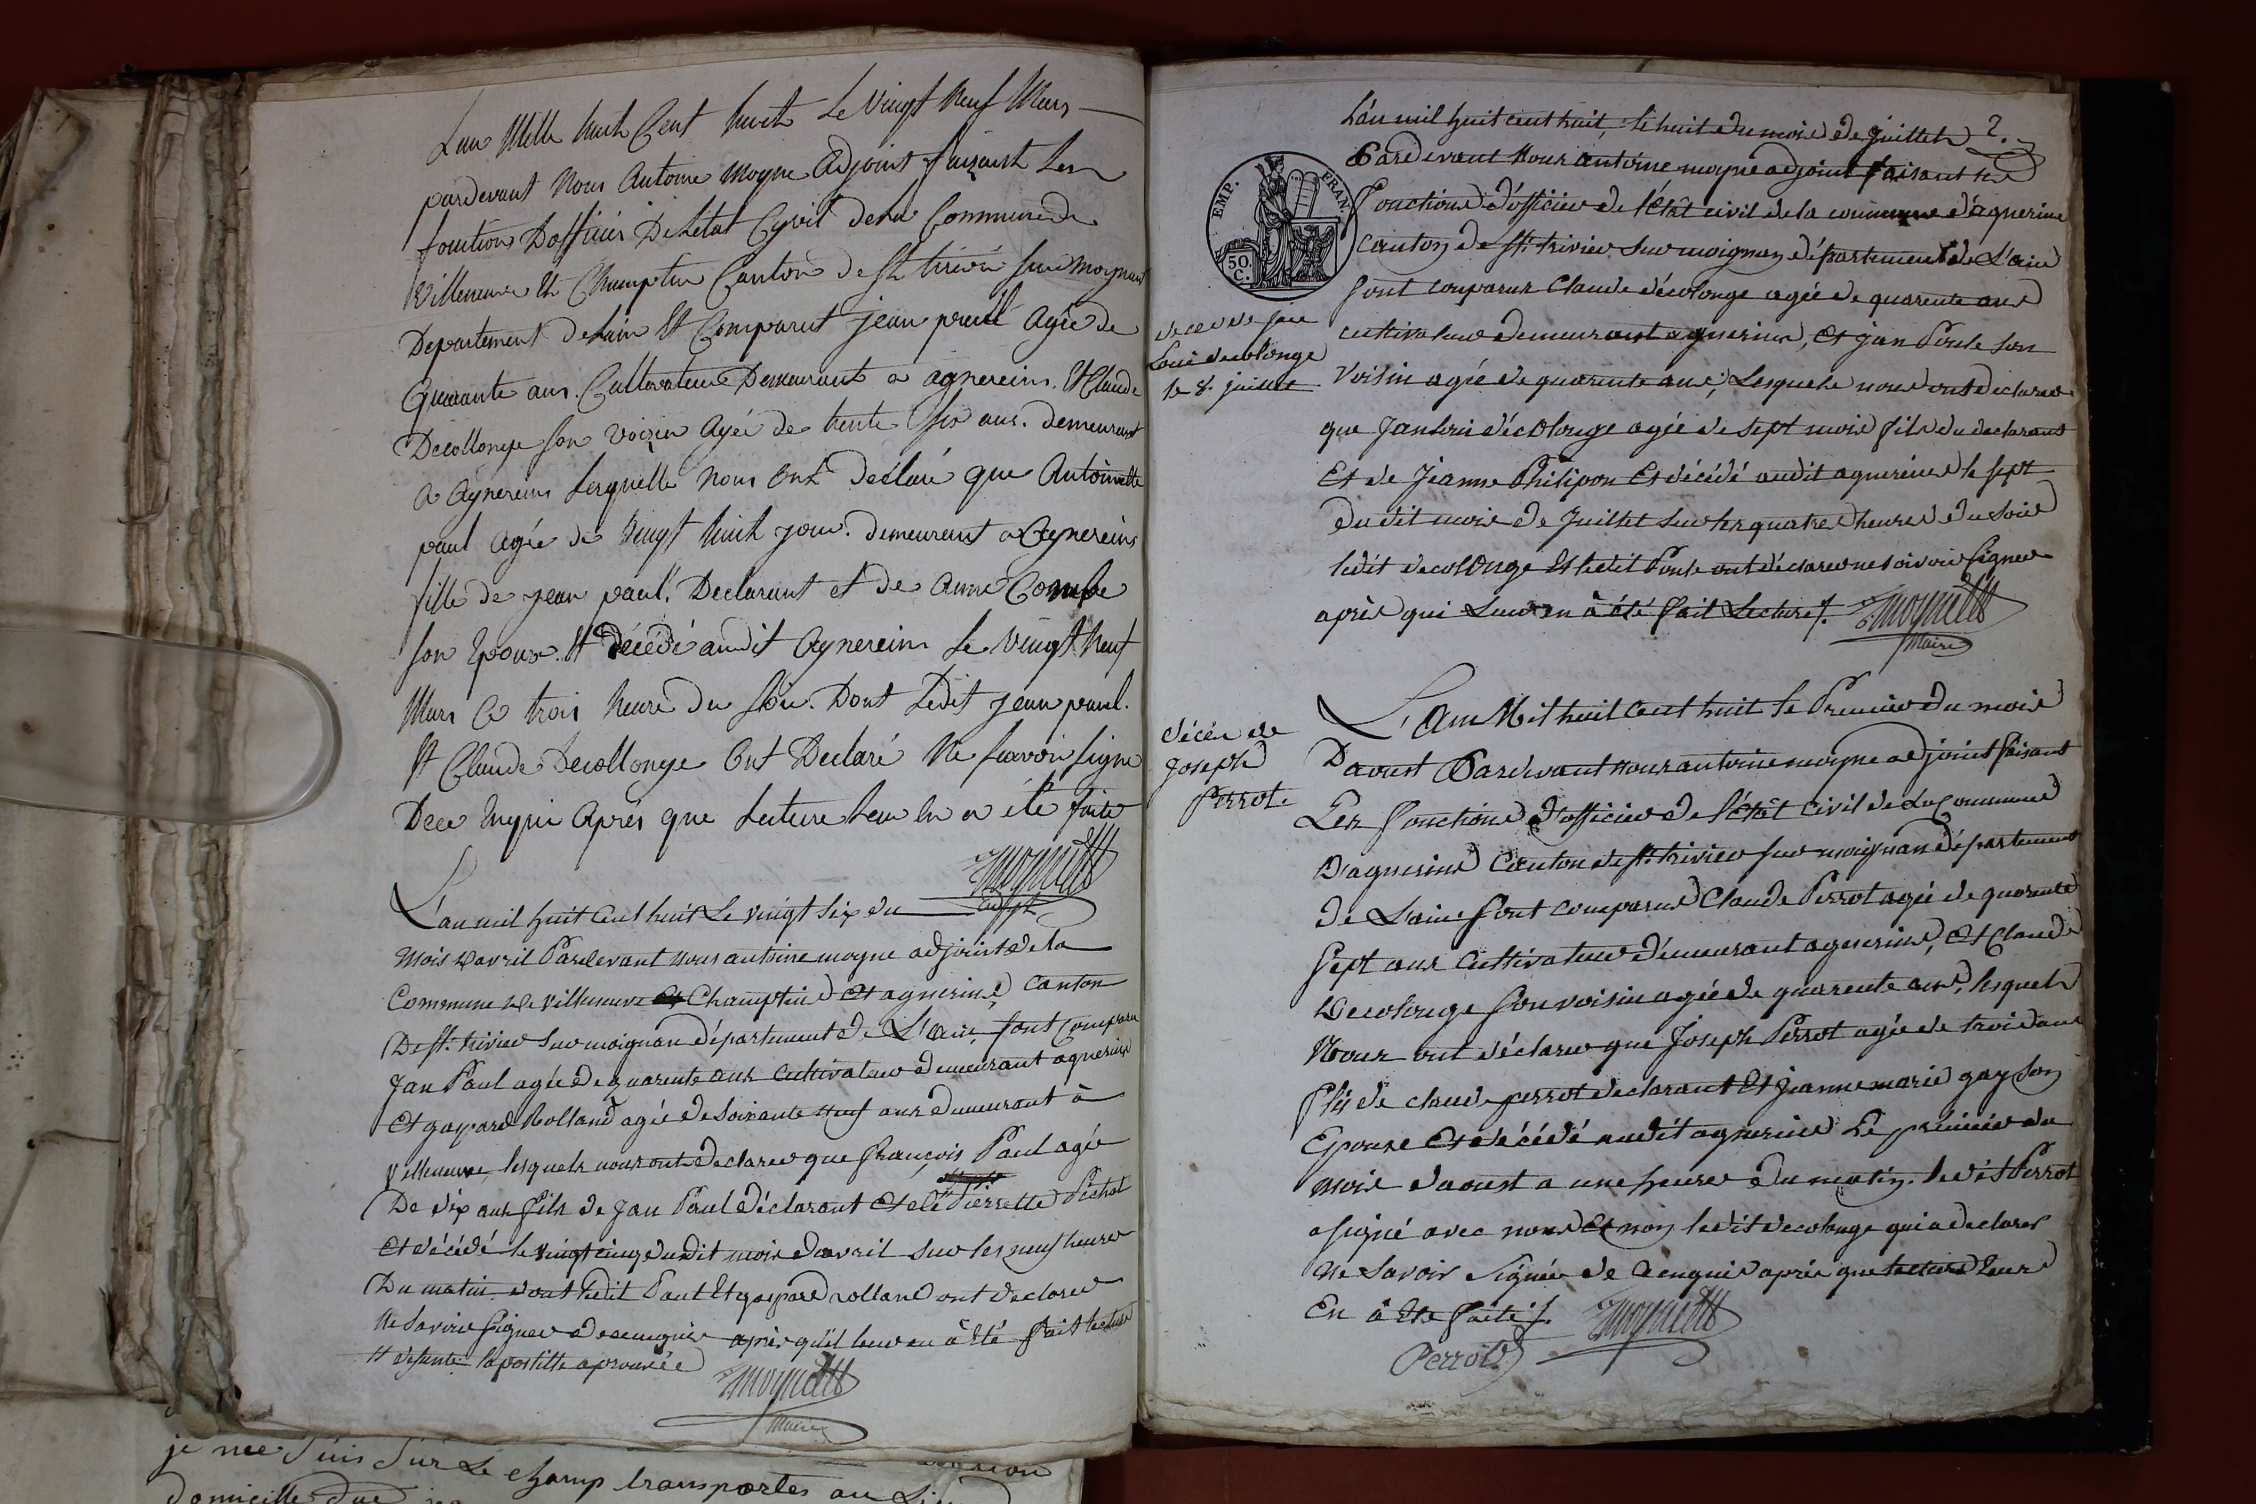 L'an Mille huit Cent huit Le Vingt Neuf Mars
pardevant Nous Antoine moyne Adjoint faisant Les
fonction D'officier De L'etat Cyvil de la Commune de
Villeneuve Et Champtin Canton de St trivier sur moignans
Departement de L'ain Et Comparut jean paul Agée de
Quarante ans. Cultivateur Demeurant a agnereins. Et Claude
Decollonge son Voizin Agée de trente six ans. demeurant
a Agnereins Lesquelle Nous Ont Declaré que Antoinette
paul Agée de Vingt huit jour. demeurant a Agnereins
fille de jean paul. Declarant et de Anne Combe
son Epouze. Et décédé audit Agnereins Le Vingt Neuf
Mars a trois heure du Soir. Dont Ledit jean paul.
Et Claude Decollonge Ont Declaré Ne Scavoir signe
De ce Enquis Après que Lecture Leur En a été faite
L'an mil huit Cent huit Le vingt six du
Mois d'avril Pardevant nous antoine moyne adjoint de la
Commune de villeneuve et Champtin et agnerins Canton
De St. trivier sur moignan département de L'ain, sont Comparu
Jan Paul agée de quarente ans cultivateur demeurant agnerins
Et gaspard Rolland agée de Soixante neuf ans demeurant à
Villeneuve, lesquels nous ont declarer que françois Paul agée
De dix ans fils de Jan Paul déclarant et de Pierrette Pichat
Et décédé le vingt cinq dudit mois d'avril sur les neuf heures
Du matin dont ledit Paul Et gaspard rolland ont declarer
Ne Savoir signer de ce enquis après qu'il leur en à été fait lecture
la postille aprouvée
Maire
je me suis sur Le champ transportes au
domicille
L'an mil huit cent huit, le huit du mois de juillet 2.
Pardevant Nous antoine moyne adjoint faisant les
Fonctions d'officier de l'état civil de la commune d'agnerins
Canton de St. trivier sur moignan département de L'ain
sont comparus Claude décolonge agée de quarente ans
cultivateur demeurant agnerins, et jan Poule son
Voisin agée de quarente ans, Lesquels nous ont declarer
que Jan loui décolonge agée de sept mois fils du declarant
Et de Jeanne Philipon Et décédé audit agnerins le sept
du dit mois de Juillet sur les quatre heures du soir
ledit decolonge Et ledit Poule ont déclarer ne savoir signer
après qui Leur en à été fait Lecture ./.
Maire
EMP. FRAN.
50. C.
deces de Jan
Loui decolonge
le 8. juillet
L'an Mil huit cent huit le Premier du mois
D'aoust Pardevant nous antoine moyne adjoint faisant
Les fonctions d'officier de l'état civil de La Commune
D'agnerins Canton de St. trivier sur moignan département
de L'ain sont comparus Claude Perrot agée de quarente
sept ans cultivateur demeurant agnerins, et Claude
Decolonge son voisin agée de quarente ans, lesquels
Nous ont déclarer que Joseph Perrot agée de trois ans
fils de claude perrot declarant Et jeanne marie gay son
Epouse Et décédé audit agnerins Le premier du
mois d'aoust a une heure du matin. ledit Perrot
a signé avec nous et non ledit decolonge qui a declarer
ne savoir signer de ce enquis après que lecture leur
En à Eté faite ./.
Perrot
décès de
joseph
Perrot.